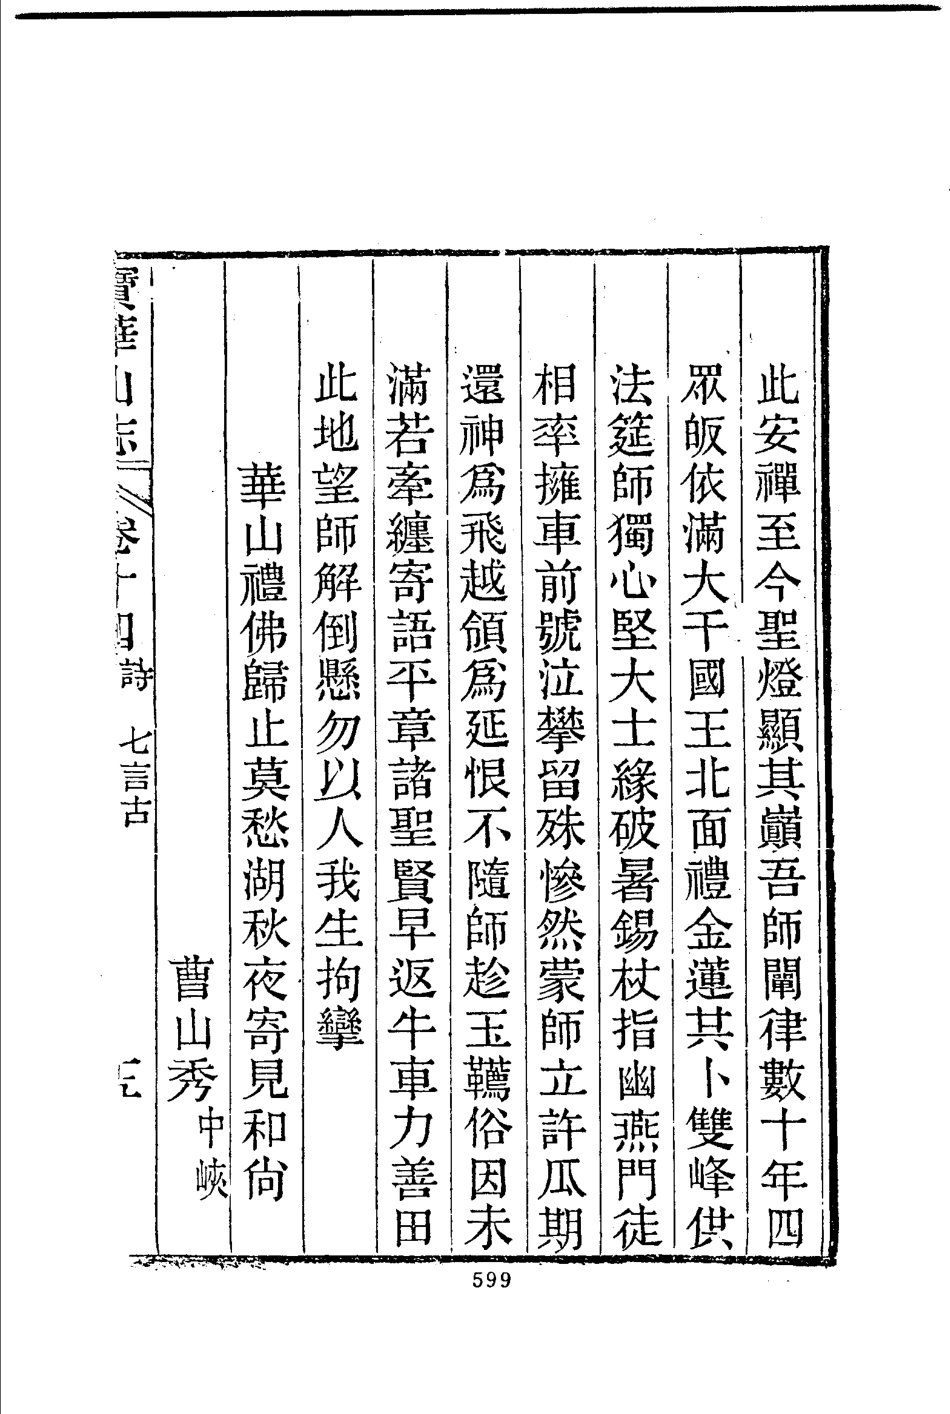 此安禪至今聖燈顯其巔吾師闡律數十年四
眾皈依滿大千國王北面禮金蓮其卜雙峰供
法筵師獨心堅大士緣破暑錫杖指幽燕門徒
相率擁車前號泣攀留殊慘然蒙師立許瓜期
還神爲飛越領爲延恨不隨師趁玉鞴俗因未
滿若牽纏寄語平章諸聖賢早返牛車力善田
此地望師解倒懸勿以人我生拘攣
華山禮佛歸止莫愁湖秋夜寄見和尙
曹山秀中峽
寶華山志 卷十四 詩 七言古
599